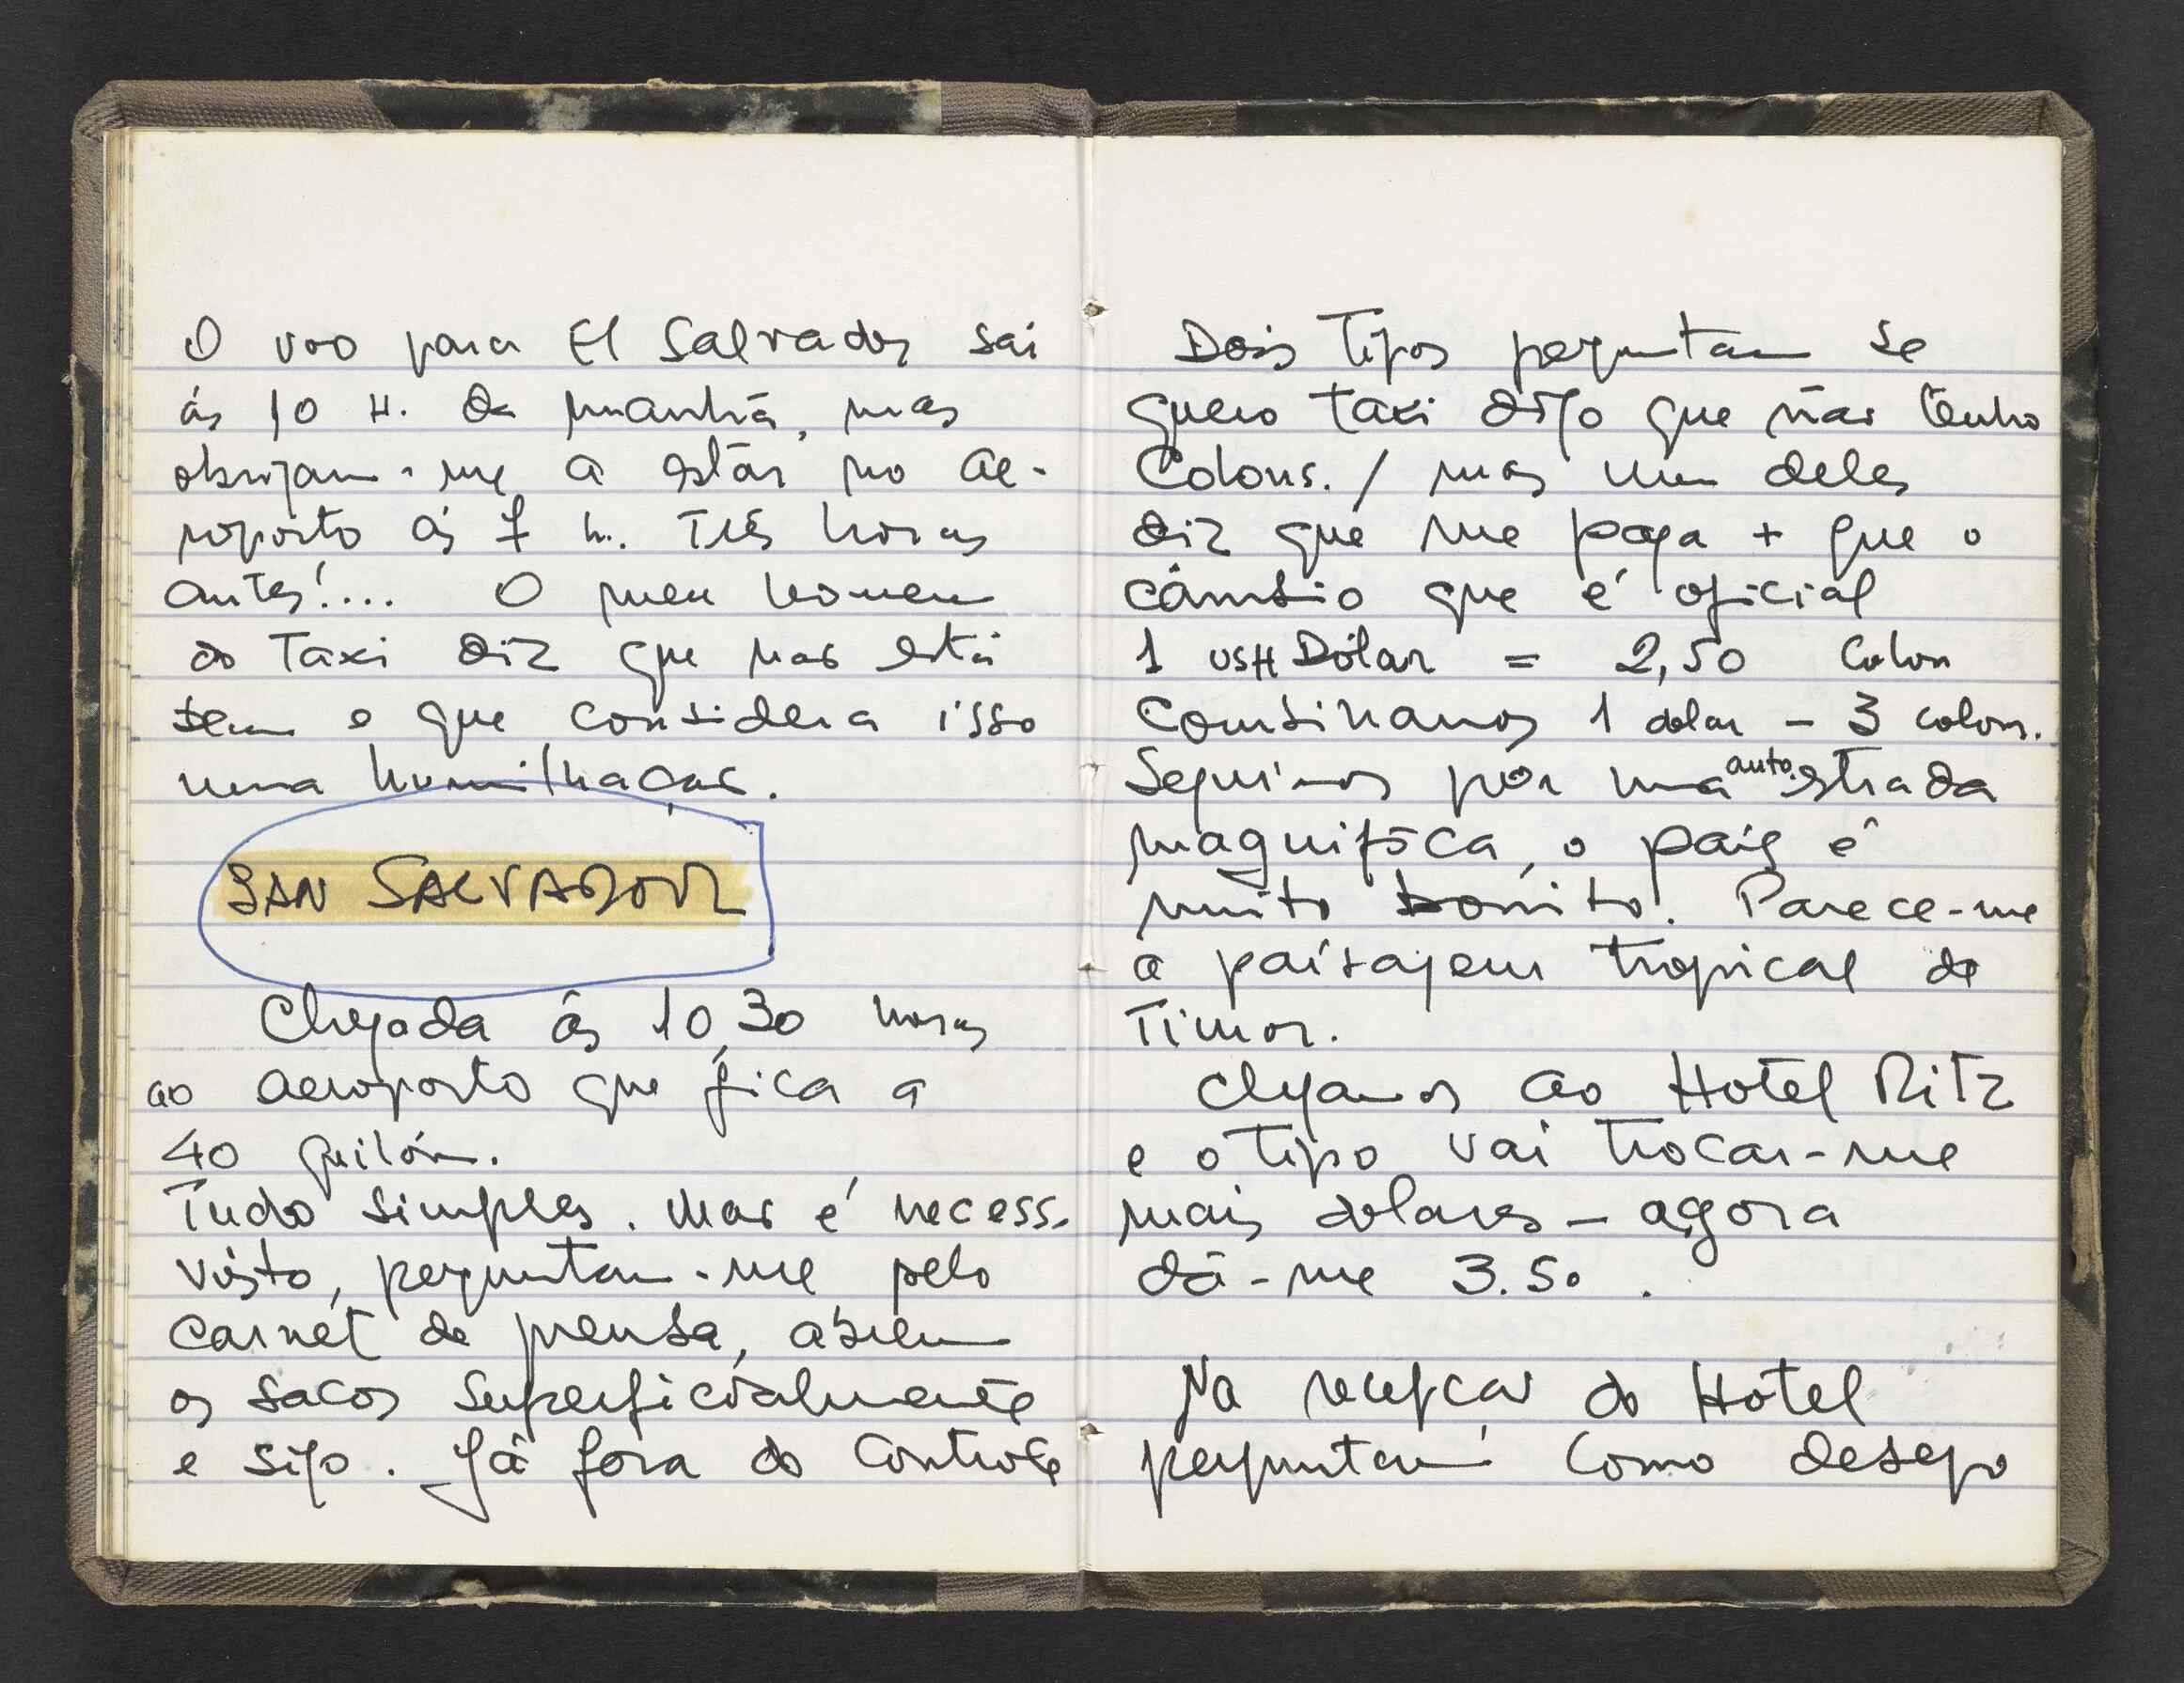 O voo para El Salvador sai
ás 10 H. da manhã, mas
obrigam-me a estár no ae-
roporto ás 7 h. Três horas
antes!.... O meu homem
do Taxi diz que não está
bem e que considera isso
uma humilhação.
SAN SALVADOR
Chegada ás 10,30 horas
ao aeroporto que fica a
40 quilóm.
Tudo simples. Não é necess.
visto, perguntam-me pelo
carnet de prensa, abrem
os sacos superficialmente
e sigo. Já fora do Controle
Dois Tipos perguntam se
quero taxi digo que não tenho
Colons. / mas um deles
diz que me paga + que o
câmbio que é oficial
1 USA Dólar = 2,50 Colon
Combinamos 1 dolar - 3 colons.
Seguimos por uma auto-estrada
magnifica, o país é
muito bonito! Parece-me
a paisagem tropical de
Timor.
Chegamos ao Hotel Ritz
e o Tipo vai trocar-me
mais dolares - agora
dá-me 3.50.
Na recepção do Hotel
perguntam como desejo